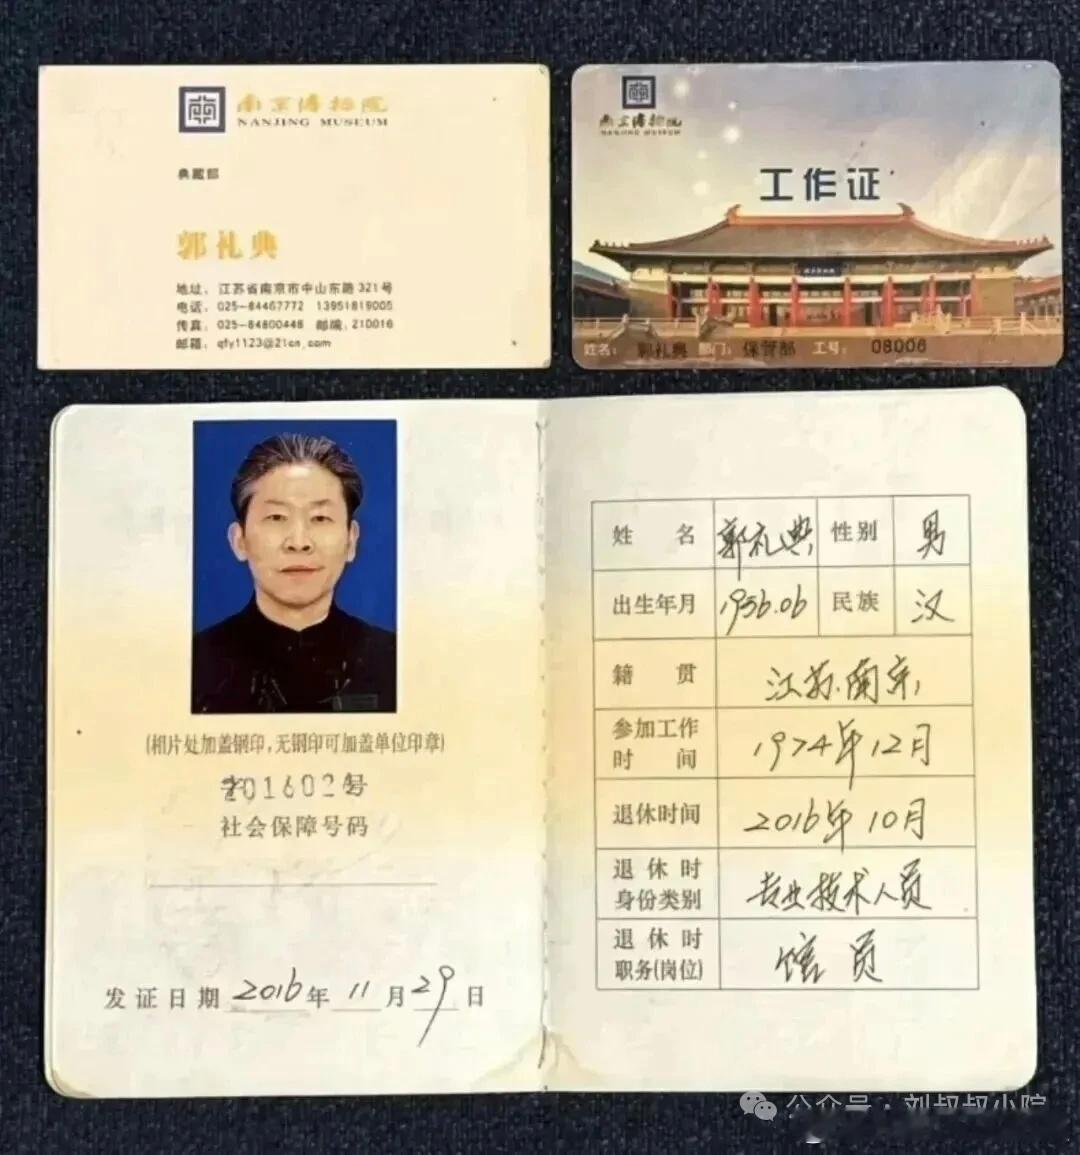 南京博物院
NANJING MUSEUM
典藏部
郭礼典
地址：江苏省南京市中山东路321号
电话：025-84467772 13951819005
传真：025-84800448 邮编：210016
邮箱：qfy1123@21cn.com
南京博物院
NANJING MUSEUM
工作证
南京博物院
姓名：郭礼典 部门：保管部 工号：08006
(相片处加盖钢印，无钢印可加盖单位印章)
号
社会保障号码
发证日期 2016年 11月29日
姓名 郭礼典 性别 男
出生年月 1956.06 民族 汉
籍贯 江苏.南京
参加工作时间 1974年12月
退休时间 2016年10月
退休时身份类别 专业技术人员
退休时职务(岗位) 馆员
公众号·刘叔叔小院